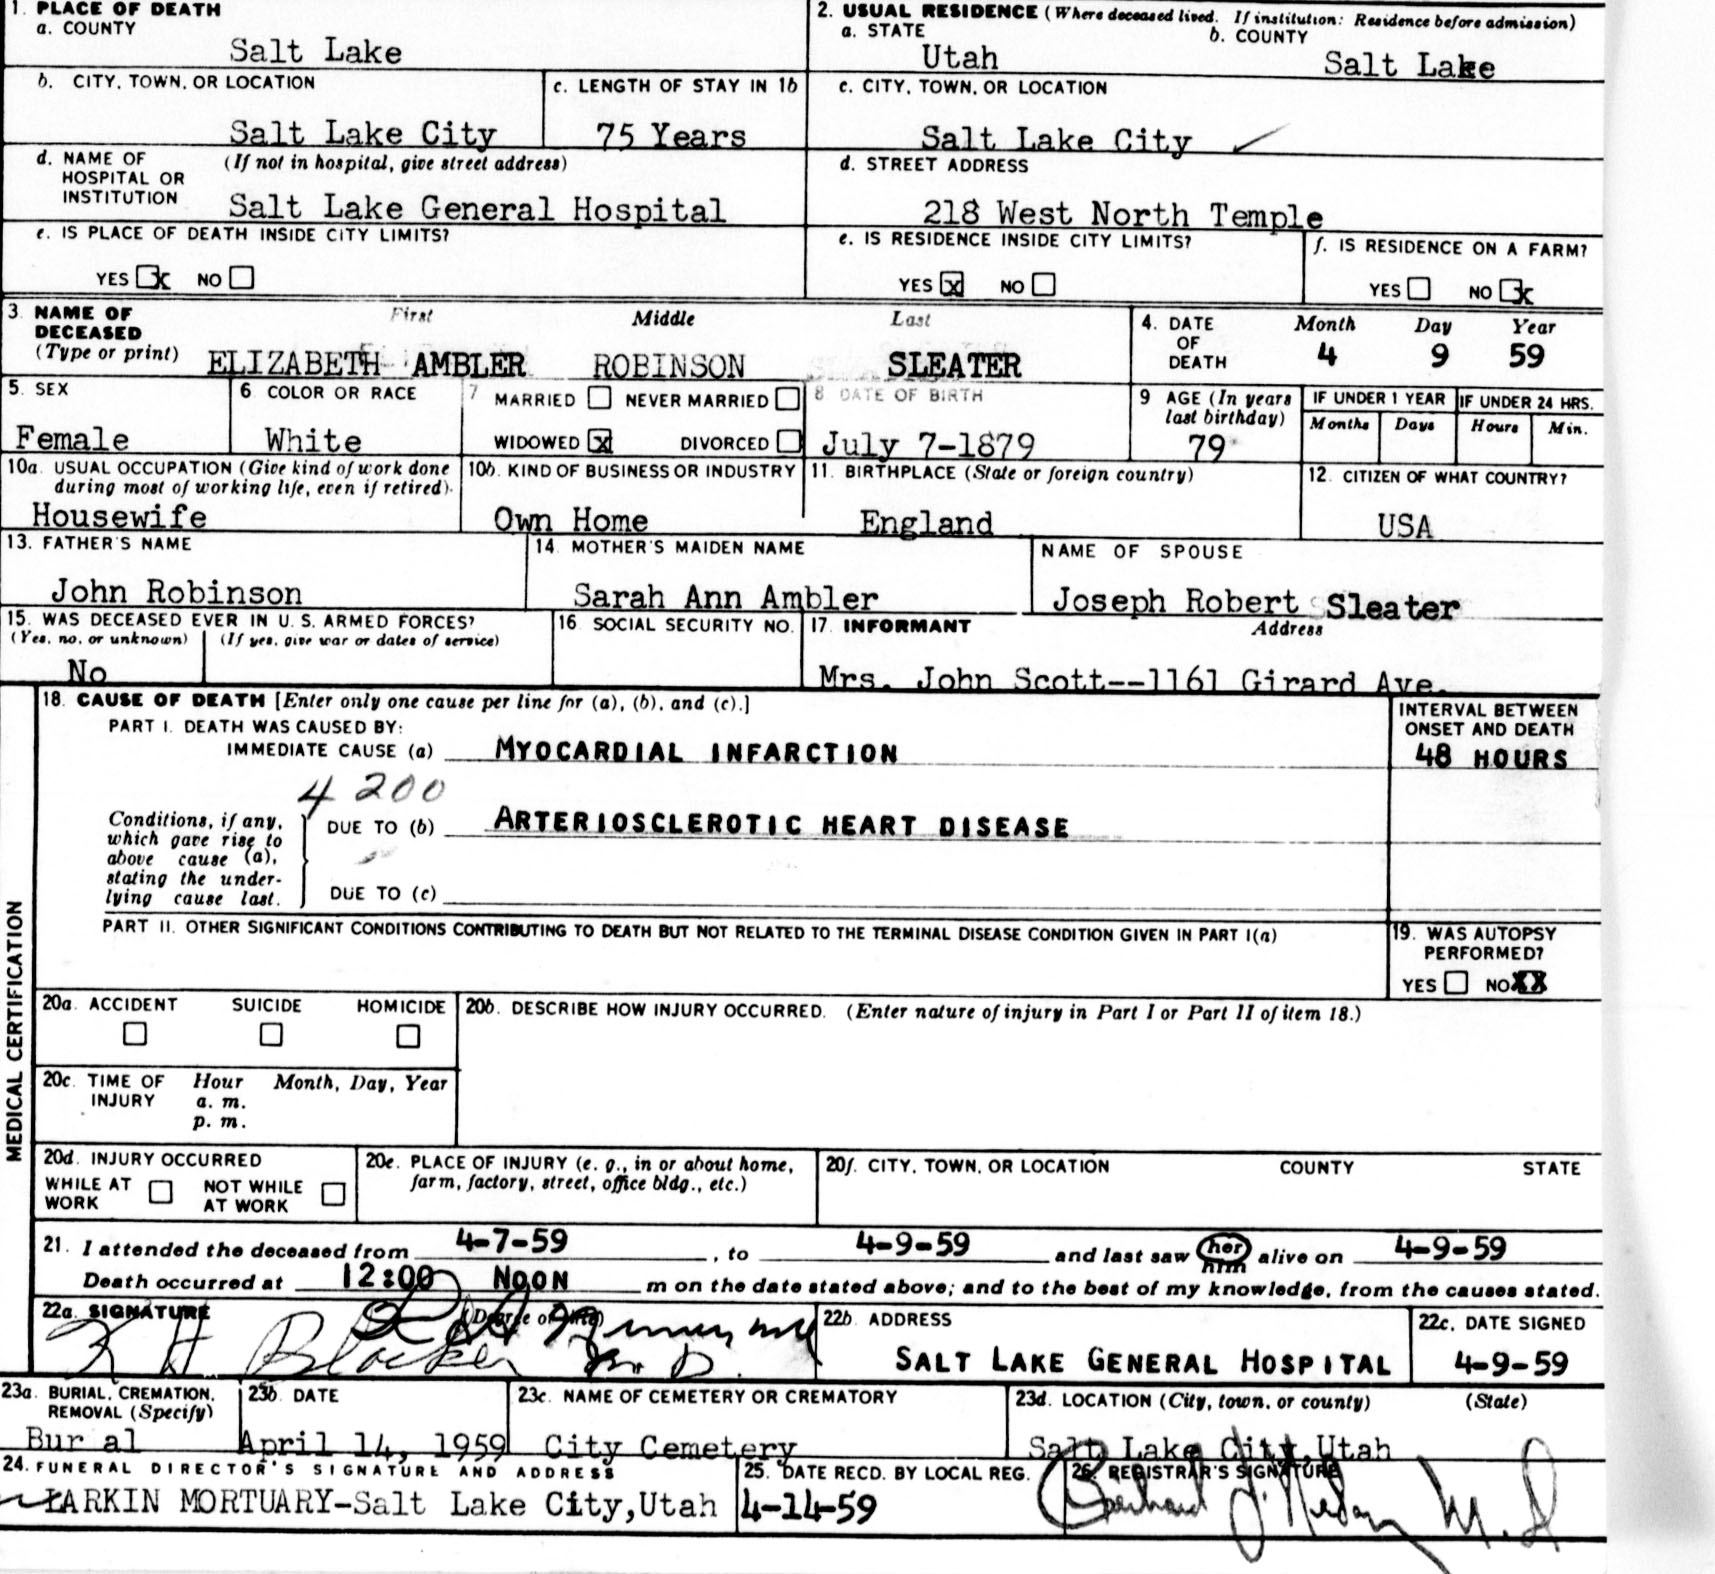 1. PLACE OF DEATH
a. COUNTY
Salt Lake
2. USUAL RESIDENCE (Where deceased lived. If institution: Residence before admission)
a. STATE b. COUNTY
Utah Salt Lake
b. CITY, TOWN, OR LOCATION
Salt Lake City
c. LENGTH OF STAY IN 1b
75 Years
c. CITY, TOWN, OR LOCATION
Salt Lake City
d. NAME OF HOSPITAL OR INSTITUTION (If not in hospital, give street address)
Salt Lake General Hospital
d. STREET ADDRESS
218 West North Temple
e. IS PLACE OF DEATH INSIDE CITY LIMITS?
YES x NO
e. IS RESIDENCE INSIDE CITY LIMITS?
YES x NO
f. IS RESIDENCE ON A FARM?
YES NO x
3. NAME OF DECEASED (Type or print) First Middle Last
ELIZABETH AMBLER ROBINSON SLEATER
4. DATE OF DEATH Month Day Year
4 9 59
5. SEX
Female
6 COLOR OR RACE
White
7 MARRIED NEVER MARRIED
WIDOWED x DIVORCED
8 DATE OF BIRTH
July 7-1879
9 AGE (In years last birthday)
79
IF UNDER 1 YEAR IF UNDER 24 HRS.
Months Days Hours Min.
10a. USUAL OCCUPATION (Give kind of work done during most of working life, even if retired).
Housewife
10b. KIND OF BUSINESS OR INDUSTRY
Own Home
11. BIRTHPLACE (State or foreign country)
England
12. CITIZEN OF WHAT COUNTRY?
USA
13. FATHER'S NAME
John Robinson
14. MOTHER'S MAIDEN NAME
Sarah Ann Ambler
NAME OF SPOUSE
Joseph Robert Sleater
15. WAS DECEASED EVER IN U. S. ARMED FORCES?
(Yes, no, or unknown) (If yes, give war or dates of service)
No
16. SOCIAL SECURITY NO.
17. INFORMANT Address
Mrs. John Scott--1161 Girard Ave.
MEDICAL CERTIFICATION
18. CAUSE OF DEATH [Enter only one cause per line for (a), (b), and (c).]
PART I. DEATH WAS CAUSED BY:
IMMEDIATE CAUSE (a) MYOCARDIAL INFARCTION
INTERVAL BETWEEN ONSET AND DEATH
48 HOURS
4 200
Conditions, if any, which gave rise to above cause (a), stating the underlying cause last.
DUE TO (b) ARTERIOSCLEROTIC HEART DISEASE
DUE TO (c)
PART II. OTHER SIGNIFICANT CONDITIONS CONTRIBUTING TO DEATH BUT NOT RELATED TO THE TERMINAL DISEASE CONDITION GIVEN IN PART I(a)
19. WAS AUTOPSY PERFORMED?
YES NO XX
20a. ACCIDENT SUICIDE HOMICIDE
20b. DESCRIBE HOW INJURY OCCURRED. (Enter nature of injury in Part I or Part II of item 18.)
20c. TIME OF INJURY Hour Month, Day, Year
a. m.
p. m.
20d. INJURY OCCURRED
WHILE AT WORK NOT WHILE AT WORK
20e. PLACE OF INJURY (e. g., in or about home, farm, factory, street, office bldg., etc.)
20f. CITY, TOWN, OR LOCATION COUNTY STATE
21. I attended the deceased from 4-7-59, to 4-9-59 and last saw her him alive on 4-9-59
Death occurred at 12:00 NOON m on the date stated above; and to the best of my knowledge, from the causes stated.
22a. SIGNATURE (Degree or title)
K H Blacker M. D.
22b. ADDRESS
SALT LAKE GENERAL HOSPITAL
22c. DATE SIGNED
4-9-59
23a. BURIAL, CREMATION, REMOVAL (Specify)
Bur al
23b. DATE
April 14, 1959
23c. NAME OF CEMETERY OR CREMATORY
City Cemetery
23d. LOCATION (City, town, or county) (State)
Salt Lake City, Utah
24. FUNERAL DIRECTOR'S SIGNATURE AND ADDRESS
LARKIN MORTUARY-Salt Lake City,Utah
25. DATE RECD. BY LOCAL REG.
4-14-59
26. REGISTRAR'S SIGNATURE